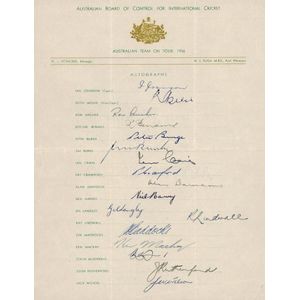 AUSTRALIAN BOARD OF CONTROL FOR INTERNATIONAL CRICKET
AUSTRALIAN TEAM ON TOUR, 1956
AUTOGRAPHS
IAN JOHNSON (Capt.) I Johnson
KEITH MILLER
RON ARCHER Ron Archer
RICHIE BENAUD R Benaud
PETER BURGE Peter Burge
JIM BURKE Jim Burke
IAN CRAIG Ian Craig
PAT CRAWFORD P Crawford
ALAN DAVIDSON Alan Davidson
NEIL HARVEY Neil Harvey
GIL LANGLEY Gil Langley
RAY LINDWALL R Lindwall
LEN MADDOCKS L Maddocks
KEN MACKAY Ken Mackay
COLIN MCDONALD
JOHN RUTHERFORD J Rutherford
JACK WILSON Jack Wilson